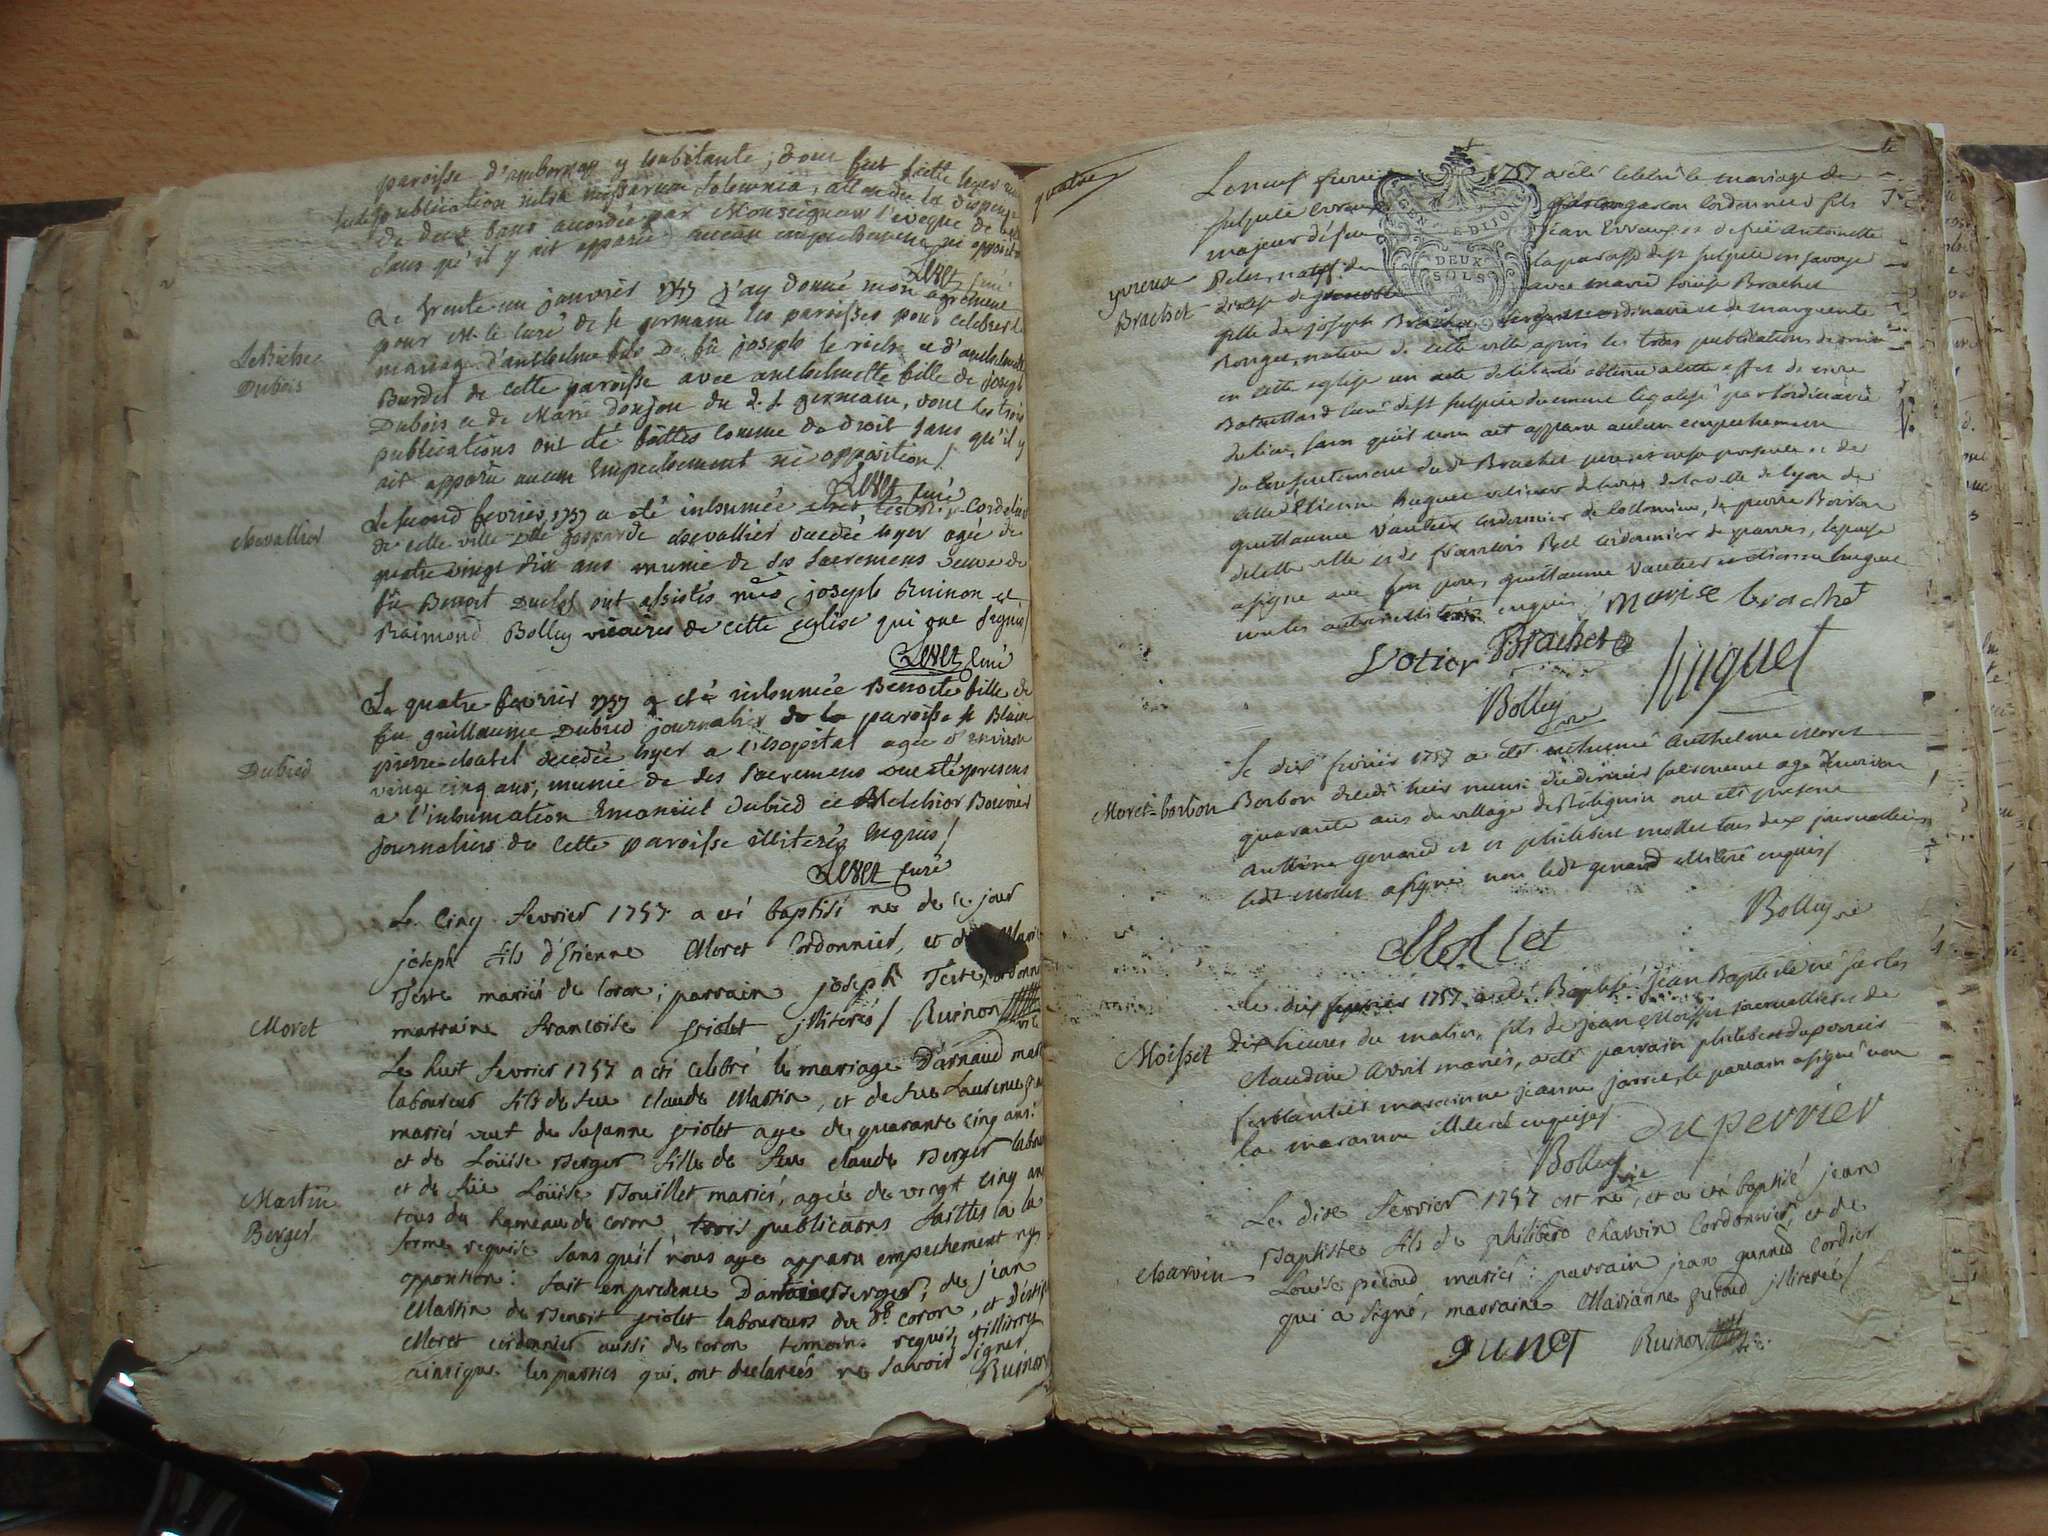 paroisse d'ambornay y habitante; dont fut faitte hyer une
publication intra missarum solemnia, attendu la dispense
de deux bans accordée par Monseigneur l'eveque de
sans qu'il y ait apparu aucun empechement ni opposition
Levet curé
Le Riche
Dubois
Le trente un janvier 1757 j'ay donné mon agrement
pour M. le curé de st germain les paroisses pour celebrer le
mariage d'anthelme fils de fû joseph le riche et d'anthelmette
Burdet de cette paroisse avec anthelmette fille de joseph
Dubois et de Marie Donjou du d. st germain, dont les trois
publications ont été faittes comme de droit sans qu'il y
ait apparu aucun empechement ni opposition /
Levet curé
chevallier
Le second fevrier 1757 a été inhumée cordeliers
de cette ville Dlle gasparde chevallier decedée hyer agée de
quatre vingt dix ans munie de ses sacremens veuve de
fû Benoit Duclos ont assistés mrs joseph Ruinon et
Raimond Bolley vicaires de cette eglise qui ont signés /
Levet curé
Dubied
Le quatre fevrier 1757 a été inhumée Benoite fille de
feu guillaume Dubied journalier de la paroisse st Blain
pierre chatel decedée hyer a l'hopital agée d'environ
vingt cinq ans, munie de ses sacremens ont été presens
a l'inhumation Emanuel Dubied et Melchior Bouvier
journaliers de cette paroisse illiterés enquis /
Levet curé
Moret
Le cinq fevrier 1757 a eté baptisé né de ce jour
joseph fils d'Etienne Moret cordonnier, et de Marie
Teste mariés de Coron; parrain joseph Teste cordonnier
marraine francoise friolet illiterés / Ruinon vic
Martin
Berger
Le huit fevrier 1757 a eté celebré le mariage D'arnaud martin
laboureur fils de feu claude Martin, et de feue Laurence
mariés veuf de Susanne friolet agé de quarante cinq ans:
et de Loüise Berger fille de feu claude Berger laboureur
et de füe Loüise Bouillet mariés, agée de vingt cinq ans
tous du hameau de coron, trois publications faittes en la
forme requise sans qu'il nous aye apparu empechement ny
opposition: fait en presence D'antoine Berger, de jean
Martin de Benoit friolet laboureurs du d. coron, et D'étienne
Moret cordonnier aussi de coron temoins requis et illiterés
ainsi que les parties qui ont declarées ne savoir signer
Ruinon
quatre
yvreux
Brachet
Le neuf fevrier 1757 a été celebré le mariage de
sulpice Evreux garcon cordonnier fils
majeur de feu jean Evreux et de füe antoinette
natif de la paroisse de st sulpice en savoye
diocese de grenoble avec marie loüise Brachet
GEN. EDION
DEUX
SOLS
fille de joseph Brachet et de marguerite
Ronger, native de cette ville apres les trois publications de
en cette eglise un acte de liberté obtenu a cette effet de mre
curé de st sulpice duement legalisé par l'ordinaire
du lieu, sans qu'il nous ait apparu aucun empechement
du consentement du dt Brachet pere et en sa presence et de
celle d'Etienne huguet relieur de livres de la ville de lyon de
guillaume vautier cordonnier de de pierre
de cette ville et de francois Bel cordonnier de, lepouse
a signé avec son pere, guillaume vautier et etienne huguet
non les autres illiterés enquis / marie brachet
Votier Brachet
huguet
Bolley vic
Moret-borbon
Le dix fevrier 1757 a été inhumé Anthelme Moret
Borbon decedé hier muni du dernier sacrement agé d'environ
quarante ans du village de Rétignin ont été presens
anthoine genand et et philibert mollet tous deux journalliers
ledt mollet a signé non ledt genand illiteré enquis /
Bolley vic
Mollet
Moisset
Le dix fevrier 1757 a été Baptisé jean Baptiste né sur les
Dix heures du matin, fils de jean Moisset journallier et de
claudine Avril mariés, a été parrain philibert duperrier
ferblantier maraine jeanne jarrie, le parrain a signé non
la maraine illiteré enquise /
duperrier
Bolley vic
charvin
Le dix fevrier 1757 est né, et a eté baptisé jean
Baptiste fils de philiberd charvin cordonnier, et de
Loüise péroud mariés: parrain jean gunned cordier
qui a signé, marraine Marianne péroud illiterée /
gunet
Ruinon vic.